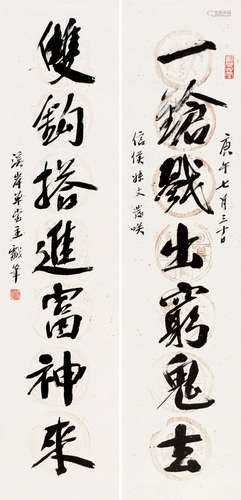 庚午七月三十日
一鎗戳出窮鬼去
信侯妹丈發哄
雙鈎搭進富神來
溪岸草堂主戲筆